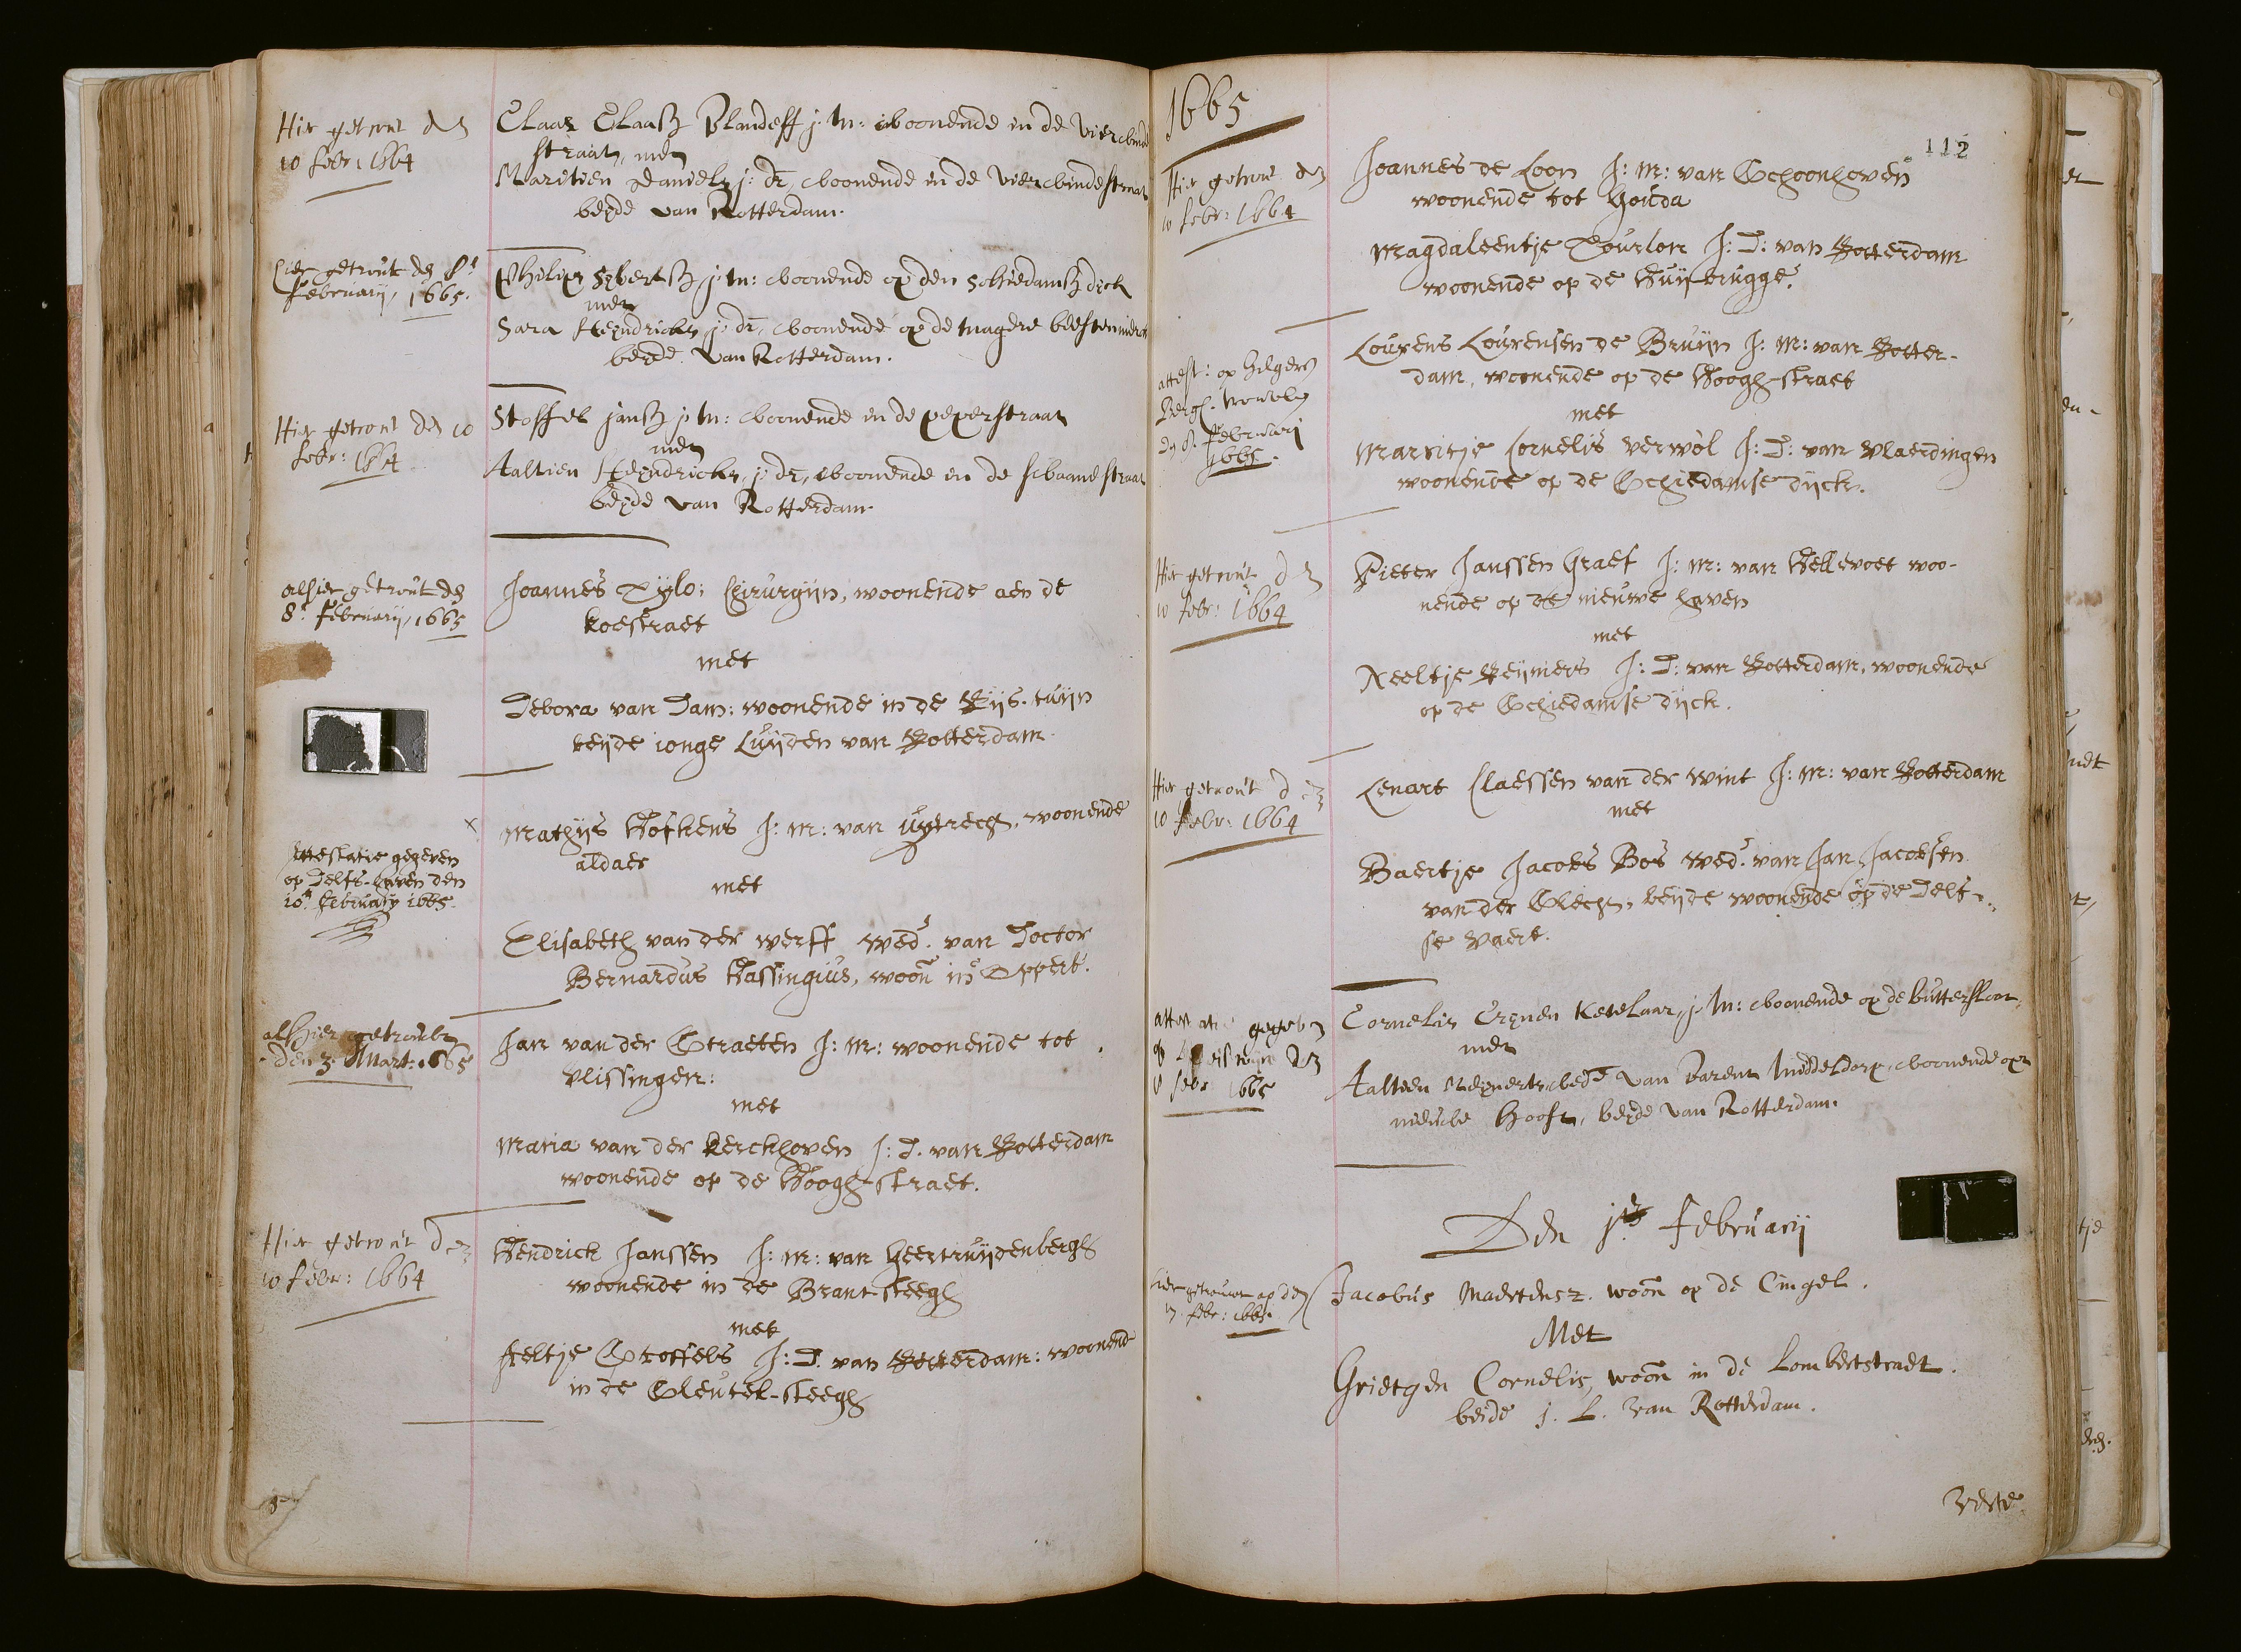 Hier getrout den
10 febr: 1664
Claas Claasz Blandeff j: m: woonende in de Vierwinde
straat, met
Maritien Daniels j: dr, woonende in de Vierwinde straat
beyde van Rotterdam.
Hier getrout den 8e
February, 1665.
Philip Sybertsz j: m: woonende op den Schiedamsz dyck
met
Sara Heyndricks j: dr, woonende op de magere beestenmerct
beyde van Rotterdam.
Hier getrout den 10
febr: 1664
Stoffel jansz j m: woonende in de peperstraat
met
Aaltien Heyndricks, j: dr, woonende in de swaanestraat
beyde van Rotterdam.
alhier getrout den
8e. February, 1665
Joannes Xylo: Chirurgijn, woonende aen de
koestraet
met
Debora van Dam: woonende in de Rijs-tuijn
beijde ionge Luijden van Rotterdam.
Attestatie gegeven
op Delfs-haven den
10en february 1665.
Mathijs Hofkens J: M: van uytrech, woonende
aldaer
met
Elisabeth van der werff wede. van Doctor
Bernardus Hassingius, woon in Oppert.
alhier getrouwt
den 3 Mart: 1665
Jan van der Straeten J: M: woonende tot
Vlissingen:
met
Maria van der kerckhoven J: D. van Rotterdam
woonende op de Hoogh-straet.
Hier getrout den
10 febr: 1664
Hendrick Janssen J: M: van Geertruijdenbergh
woonende in de Brant-steegh
met
Aeltje Stoffels J: D. van Rotterdam: woonend
in de Sleutel-steegh
1665
112
Hier getrout den
10 febr: 1664
Joannes de Loon J: M: van Schoonhoven
woonende tot Gouda
Magdaleentje Dourlon J: D: van Rotterdam
woonende op de Huijbrugge.
attest: op Hilgers
Bergh. trouwen
dn 8. february
1665.
Lourens Lourensen de Bruijn J: M: van Rotter-
dam, woonende op de Hoogh-straet
met
Marritje Cornelis verwol J: D: van Vlaerdingen
woonende op de Schiedamse dijck.
Hier getrout den
10 febr: 1664
Pieter Janssen Graef J: M: van Hellevoet woo-
nende op de nieuwe haven
met
Neeltje Reijniers J: D: van Rotterdam, woonende
op de Schiedamse dijck.
Hier getrout den
10 febr: 1664
Lenart Claessen van der Wint J: M: van Rotterdam
met
Baertje Jacobs Bos wede. van Jan Jacobsen
van der Slech, beijde woonende op de Delf-
se vaert.
attestatie gegeben
op
febr: 1665
Cornelis Crynen Ketelaar, j: m: woonende op de buttersloot,
met
Aaltien Meynerts wede van Barent Middeldorp, woonende opt
nieuwe hooft, beyde van Rotterdam.
Den je. February
hier getrouwt op den
febr: 1665.
Jacobus Maertensz. woon op de Cingel.
Met
Grietgen Cornelis, woon in de Lombertstraet.
beide j. L. van Rotterdam.
verte.